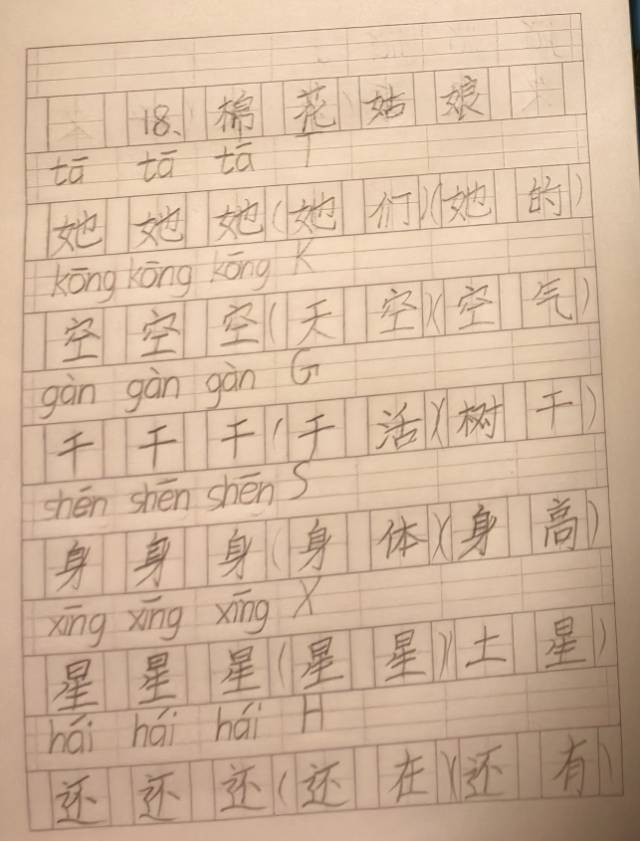 18、棉花姑娘
tā tā tā T
她 她 她(她们)(她的)
kōng kōng kōng K
空 空 空(天空)(空气)
gàn gàn gàn G
干 干 干(干活)(树干)
shēn shēn shēn S
身 身 身(身体)(身高)
xīng xīng xīng X
星 星 星(星星)(土星)
hái hái hái H
还 还 还(还在)(还有)